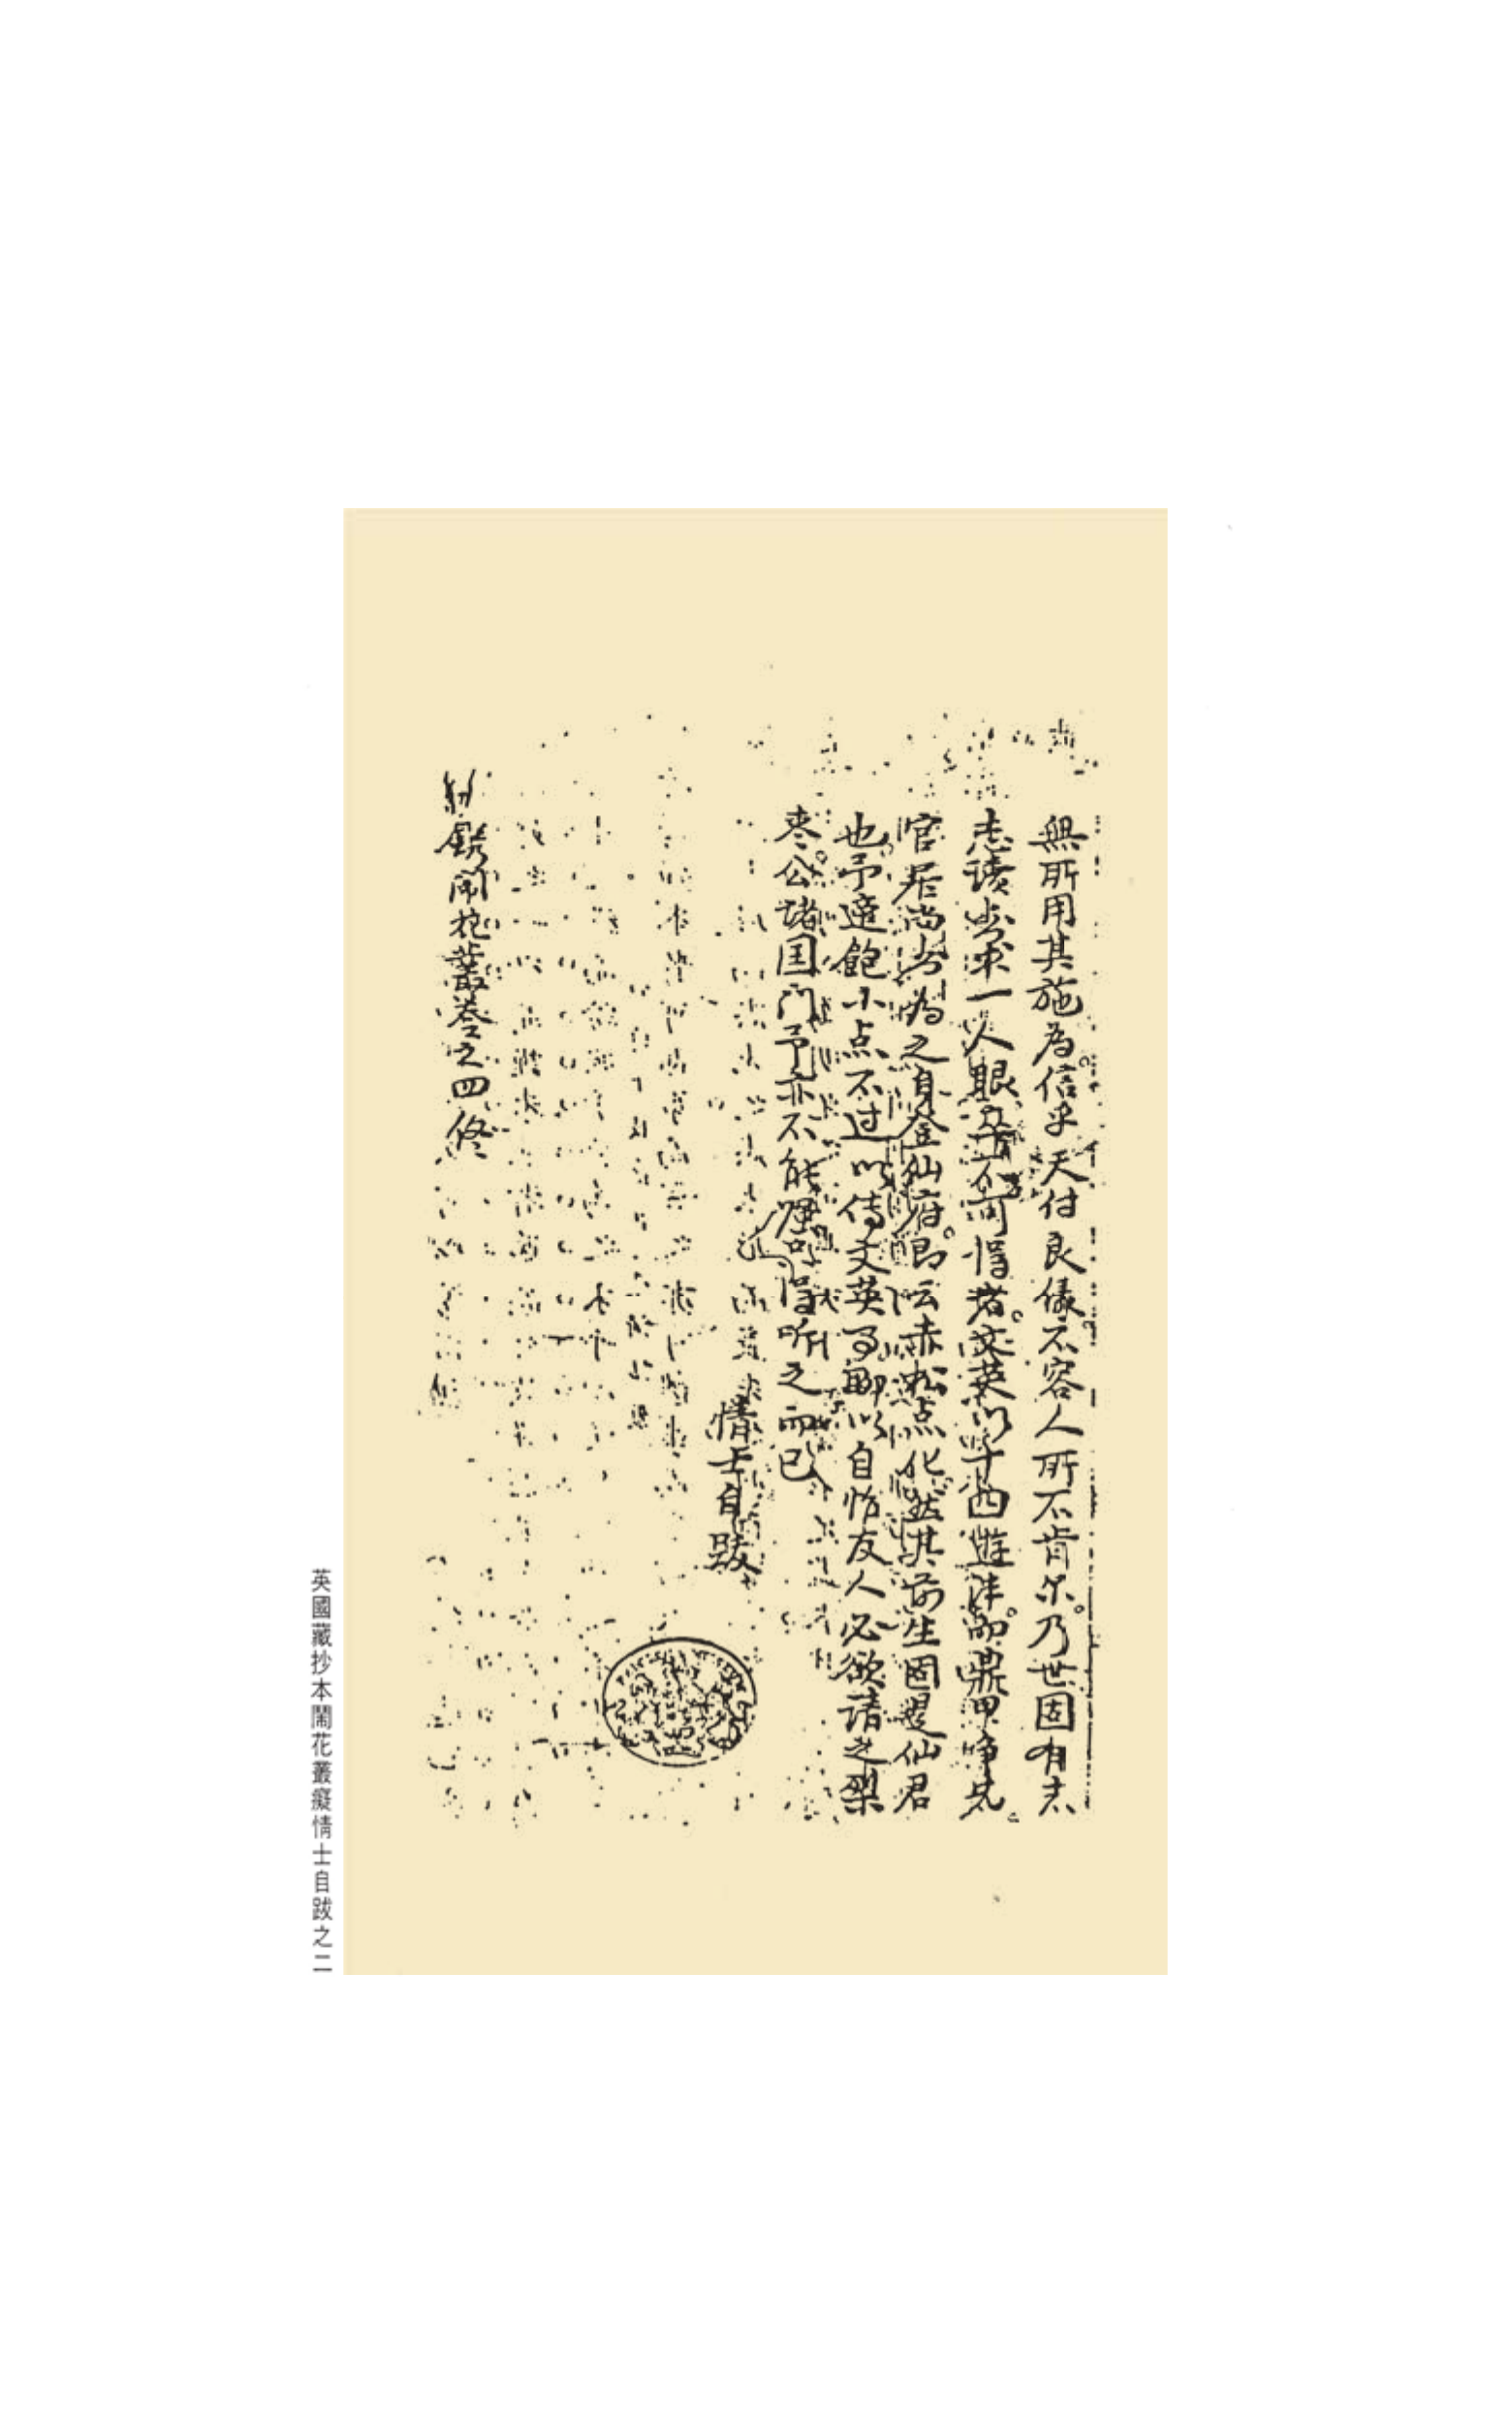 無所用其施為。信乎天付良緣。不容人所不肯尔。乃世固有志
志讀書求一人眼 不可得者。文英以十四遊泮。即鼎甲争先。
官居尚書為之身登仙府。即云赤松点化。然其前生固是仙君
也。予適飽小点不过以傳文英事。聊以自怡友人必欲請之梨
枣。公堵国门予亦不能强。 得听之而已
情士自跋
鬧花叢卷之四终
英國藏抄本鬧花叢癡情士自跋之二